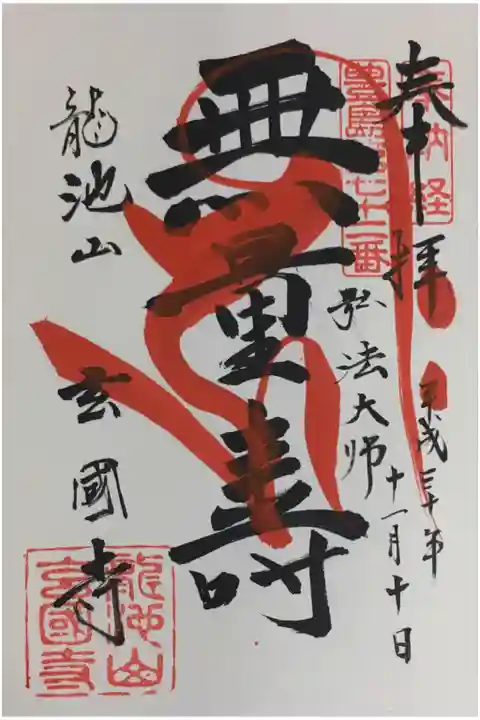 奉拝
奉納経
平成三十年
十一月十日
豊島第七十二番
弘法大师
無量寿
龍池山
玄國寺
龍池山
玄國寺